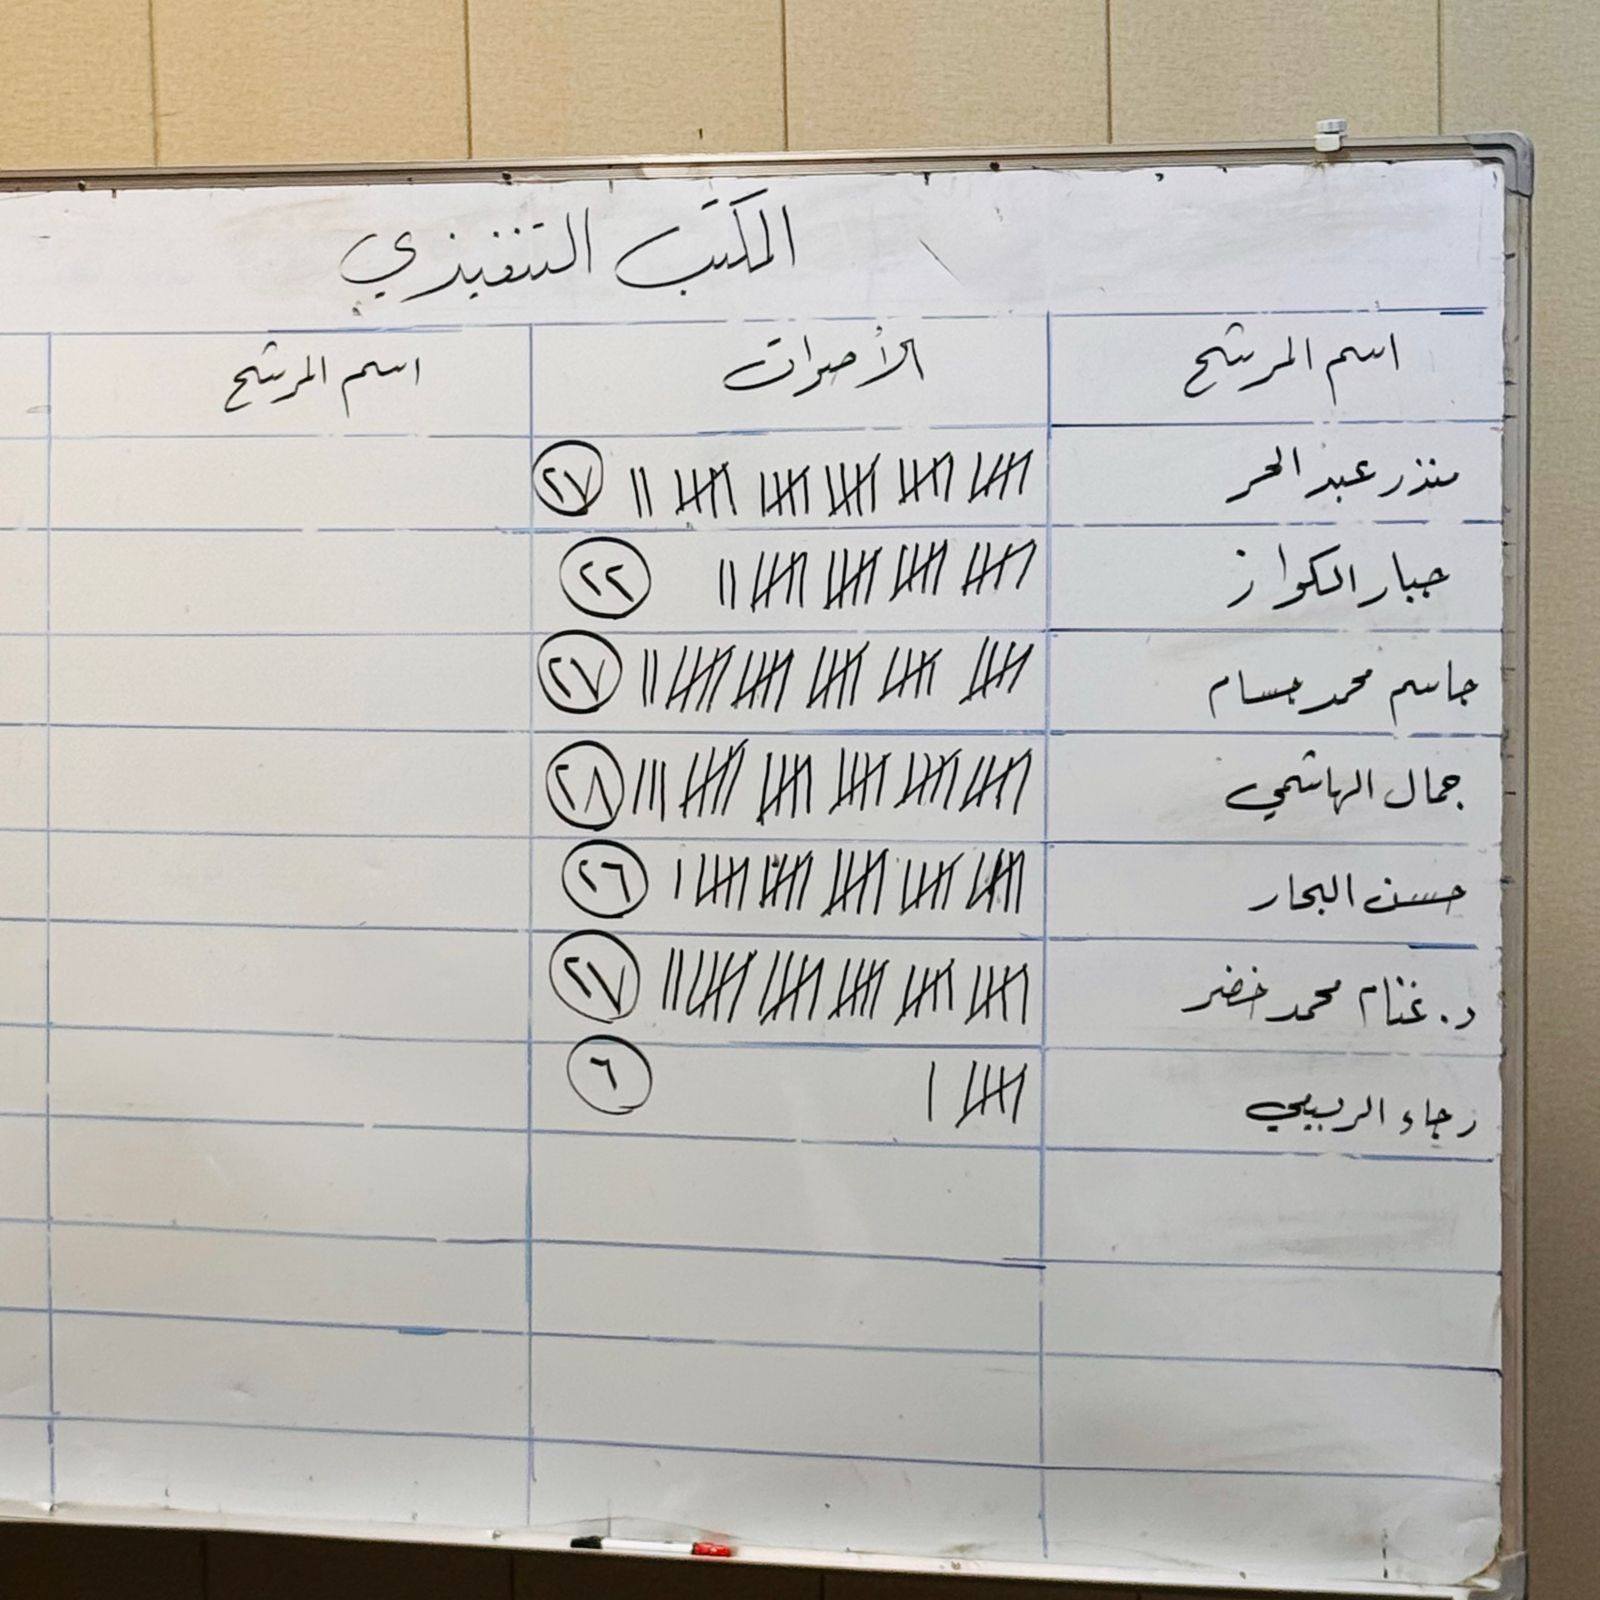 المكتب التنفيذي
اسم المرشح الأصوات اسم المرشح
منذر عبد الحر ٢٧
جبار الكواز ٢٢
جاسم محمد جسام ٢٧
جمال الهاشمي ٢٨
حسن البحار ٢٦
د. غنام محمد خضر ٢٧
رجاء الربيعي ٦